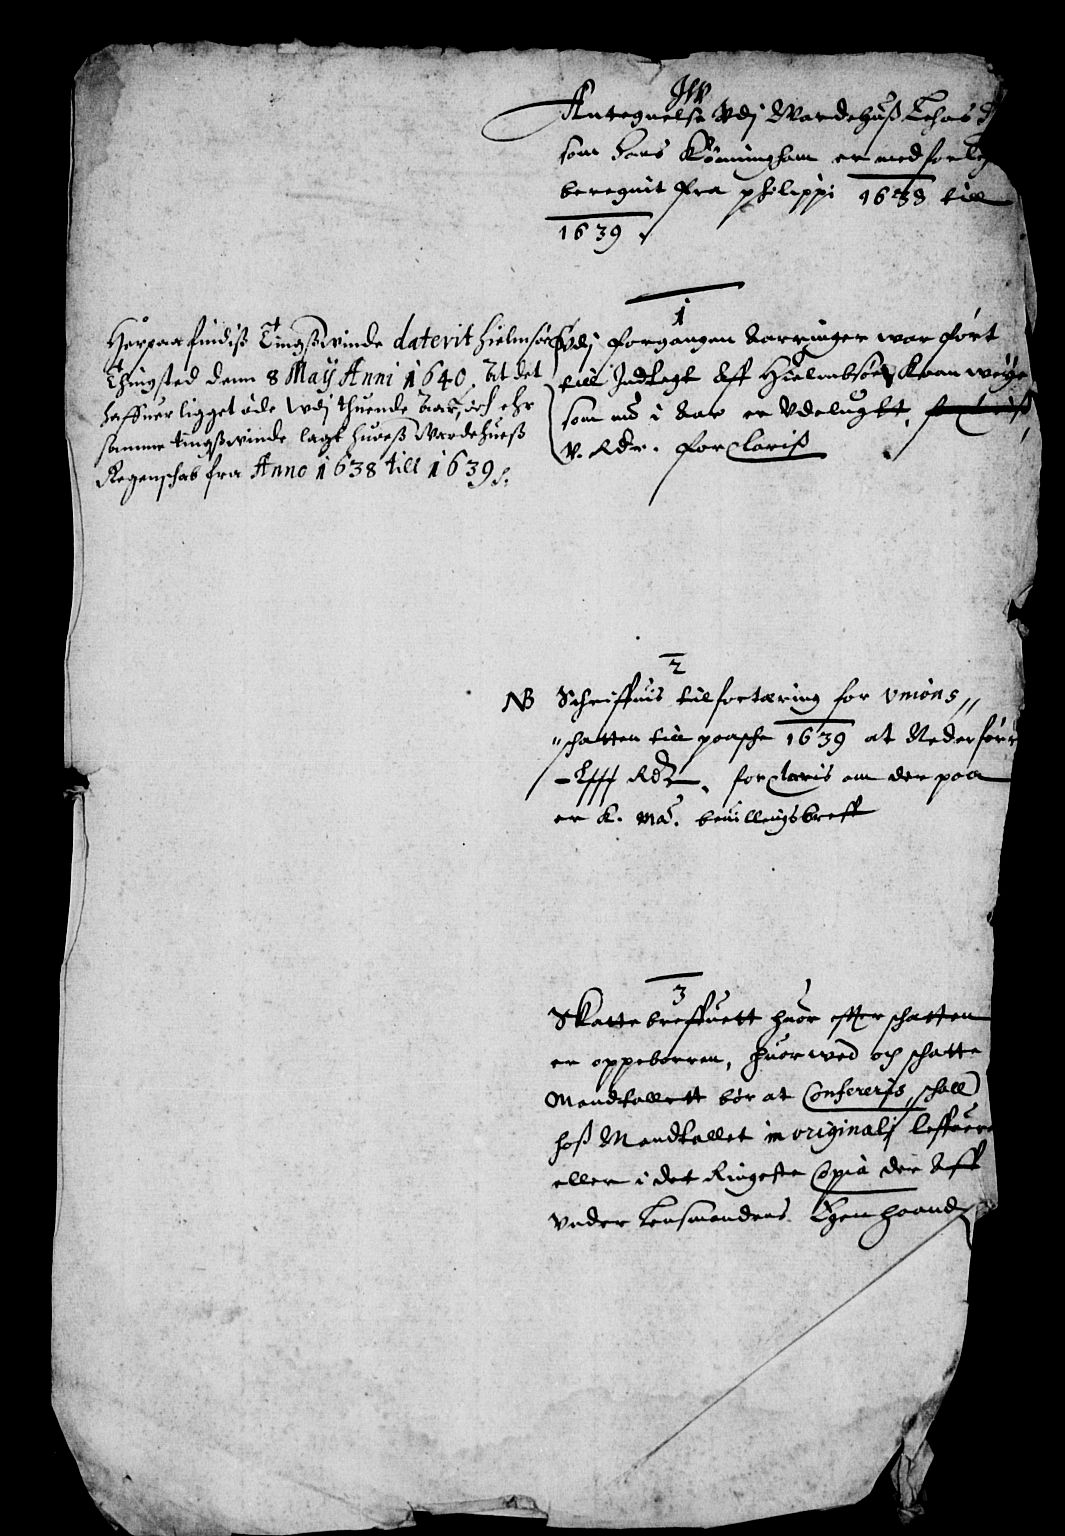 Antegnelse Vdj Wardehuß Lehns
som Hans Kønningham er med forleg
beregnit fra philippi 1638 till
1639
1
Herpaa findiß Tingßwinde daterit Hielmsøe
Thingsted denn 8 Maij Anni 1640. At det
haffuer ligget øde Vdj thuende Aar, och ehr
samme tingßwinde lagt hueß Wardehueß
Regenschab fra Anno 1638 till 1639
Vdj forgangen Aarringer war ført
till Indtegt Aff Hielmbsøe, Kaan
som nu i Aar er Vdelugkt,
v. Rdr. forclariß
2
NB Schriffuis till fortæring for Vnions
schatten till paasche 1639 at Nederføre
Rdr. forclaris om der paa
er K. Ma. beuillingsbreff
3
Skattebreffuett huor effter schatten
er oppeborren, huorwed och schatte
Mandtallett bør at Confereris, schall
hoß Mandtallet in originalj leffuere
eller i det Ringeste Copia der Aff
vnder Lensmandens Egen haand